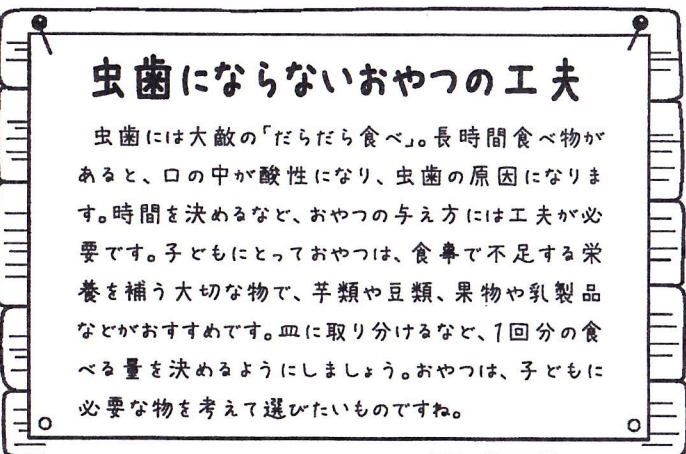 虫歯にならないおやつの工夫
虫歯には大敵の「だらだら食べ」。長時間食べ物が
あると、口の中が酸性になり、虫歯の原因になりま
す。時間を決めるなど、おやつの与え方には工夫が必
要です。子どもにとっておやつは、食事で不足する栄
養を補う大切な物で、芋類や豆類、果物や乳製品
などがおすすめです。皿に取り分けるなど、1回分の食
べる量を決めるようにしましょう。おやつは、子どもに
必要な物を考えて選びたいものですね。